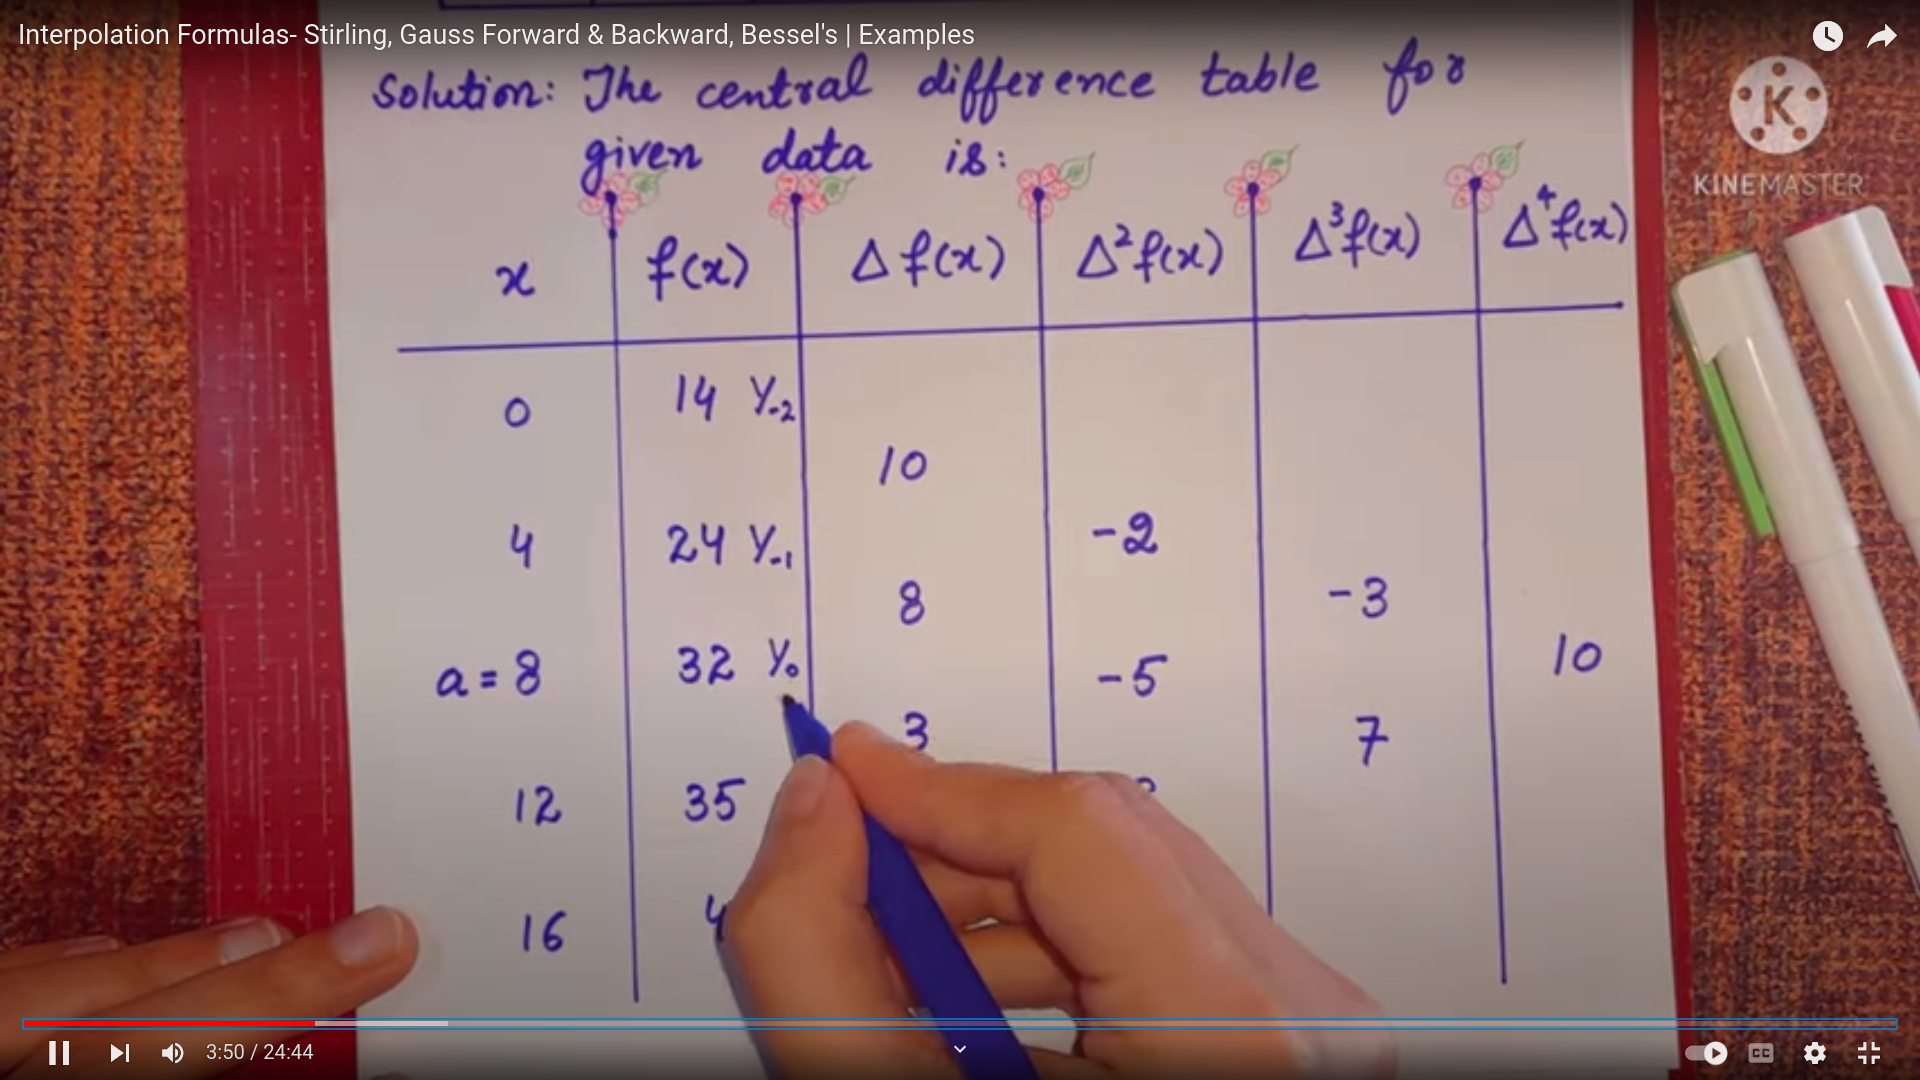 Interpolation Formulas- Stirling, Gauss Forward & Backward, Bessel's | Examples
Solution: The central difference table for
given data is:
K
KINEMASTER
x f(x) Δf(x) Δ²f(x) Δ³f(x) Δ⁴f(x)
0 14 Y₋₂
10
4 24 Y₋₁ -2
8 -3
a = 8 32 Y₀ -5 10
3 7
12 35
16
3:50 / 24:44
CC